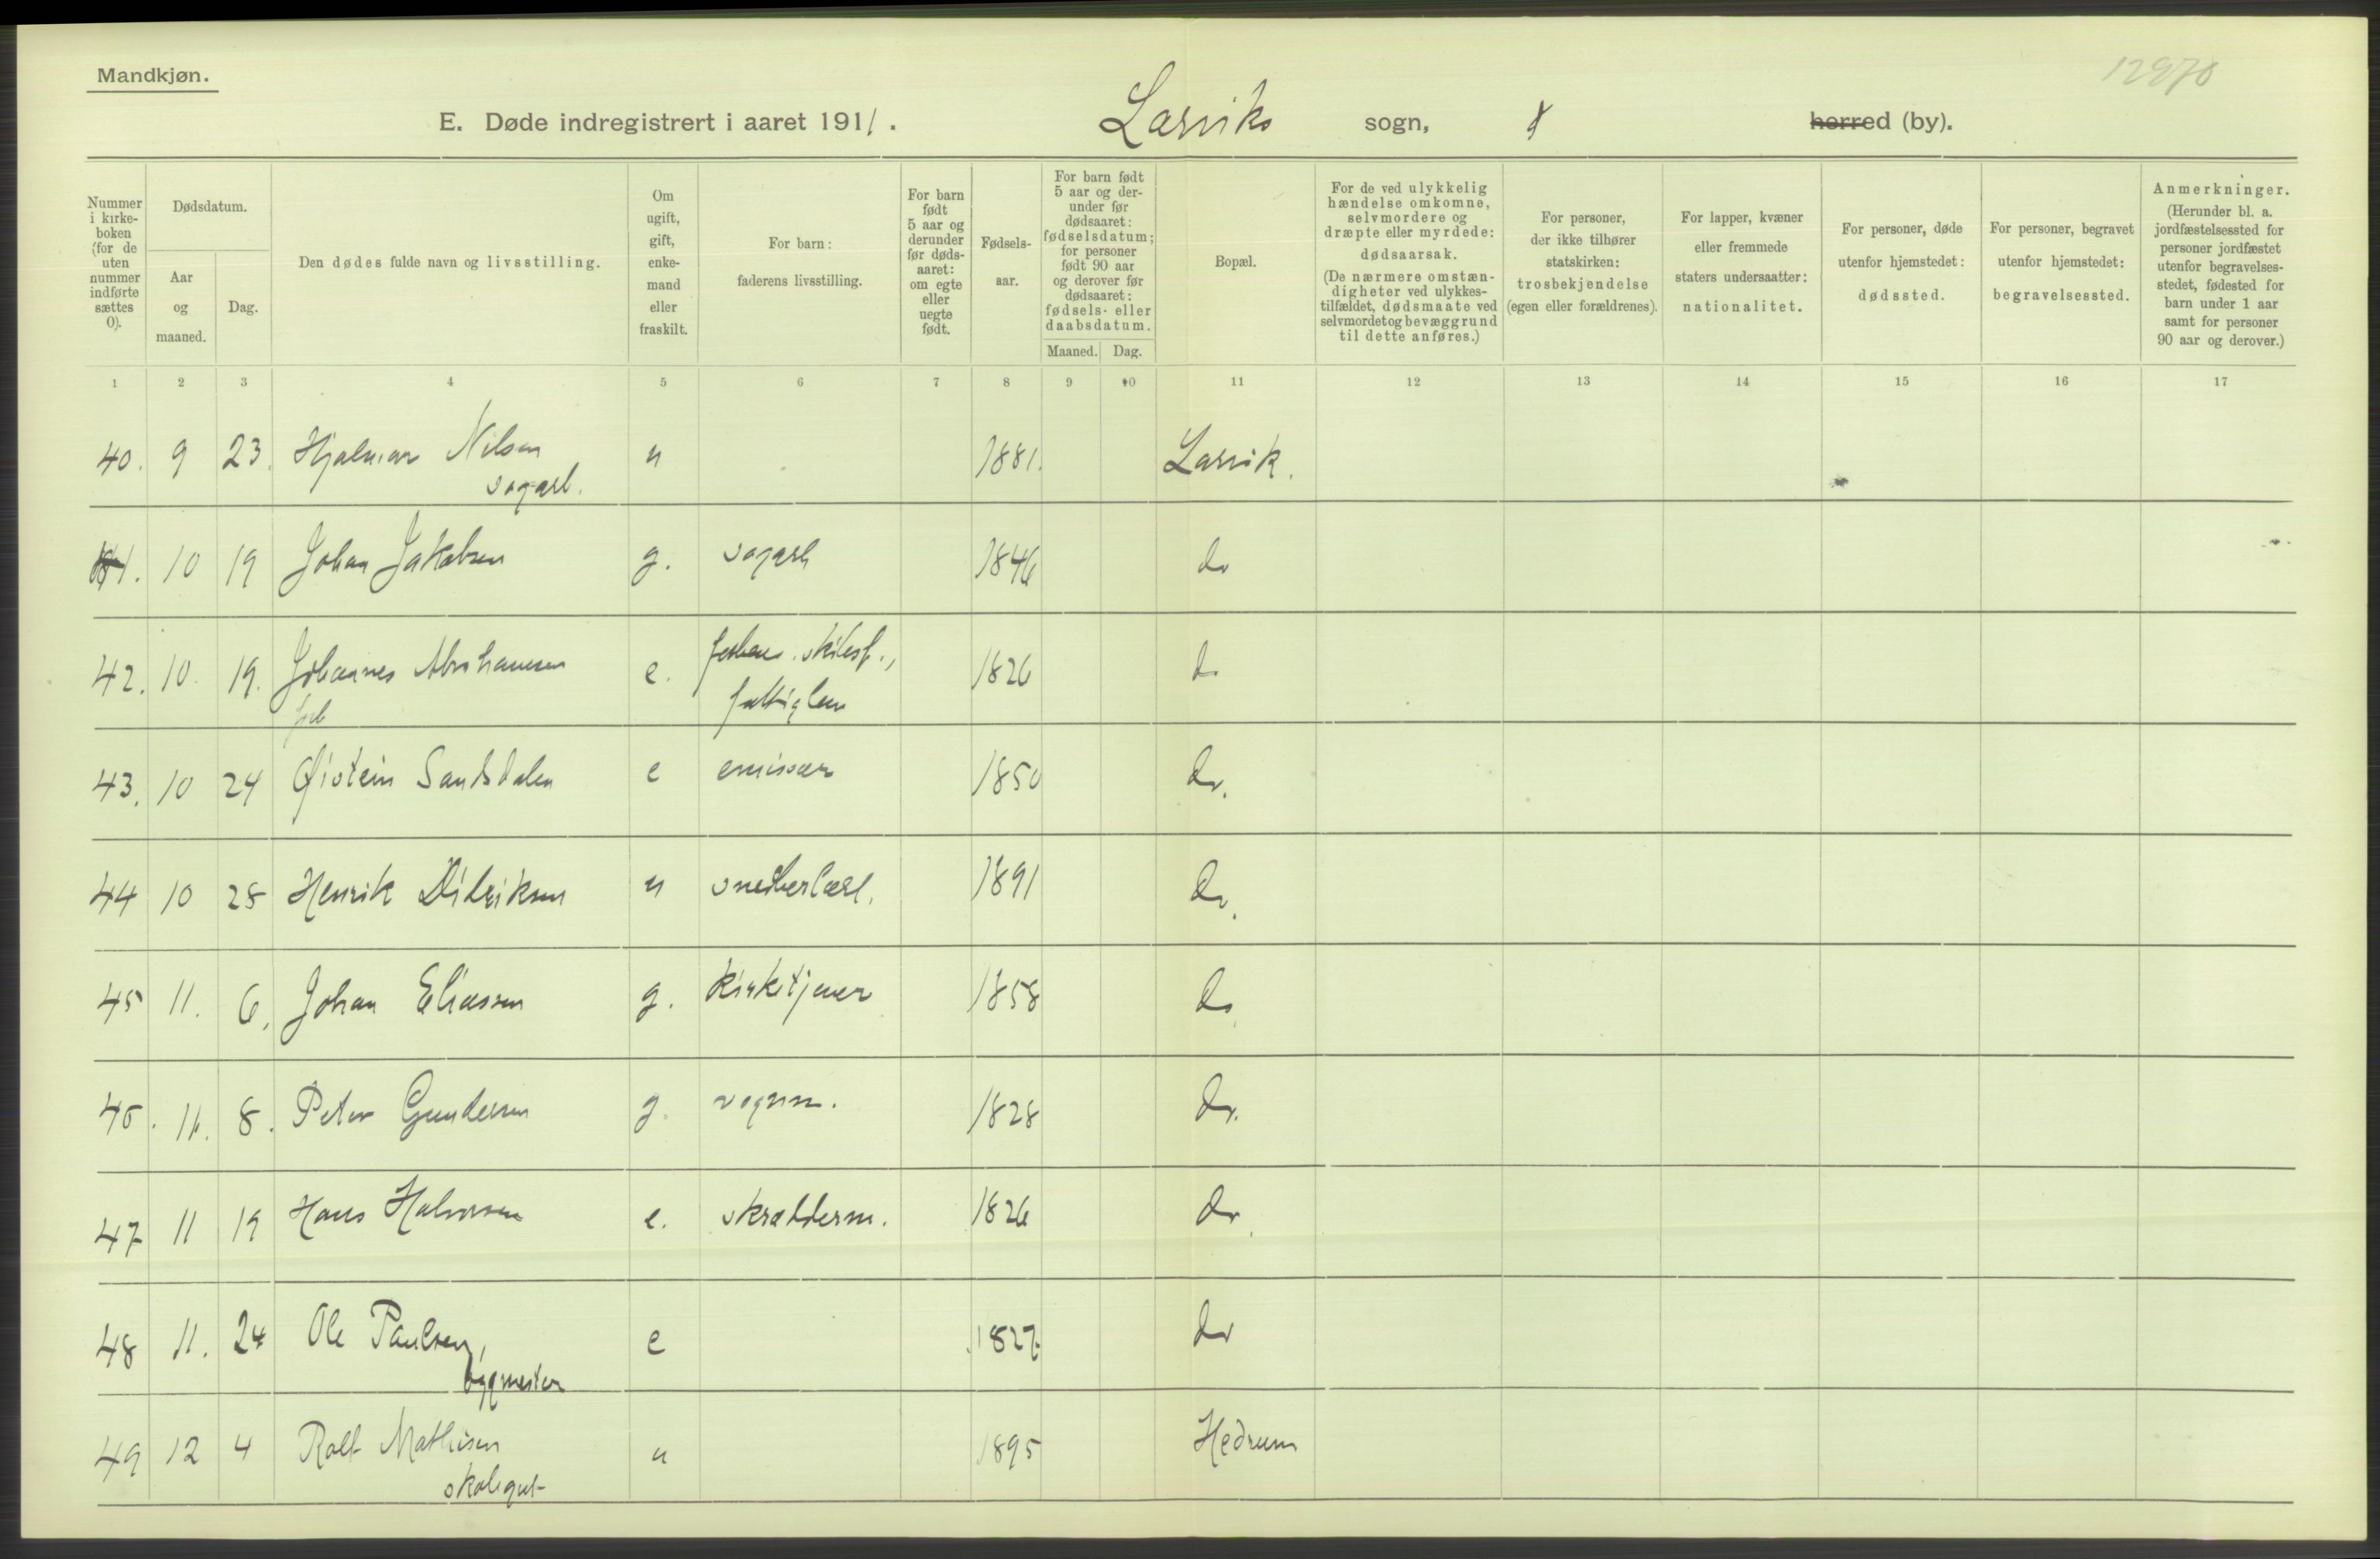 Mandkjøn.
12970
E. Døde indregistrert i aaret 1911.
Larviks sogn,
herred (by).
Nummer i kirke-boken (for de uten nummer indførte sættes 0).
Dødsdatum.
Aar og maaned.
Dag.
Den dødes fulde navn og livsstilling.
Om ugift, gift, enke-mand eller fraskilt.
For barn: faderens livsstilling.
For barn født 5 aar og derunder før døds-aaret: om egte eller uegte født.
Fødsels-aar.
For barn født 5 aar og der-under før dødsaaret: fødselsdatum; for personer født 90 aar og derover før dødsaaret: fødsels- eller daabsdatum.
Maaned.
Dag.
Bopæl.
For de ved ulykkelig hændelse omkomne, selvmordere og dræpte eller myrdede: dødsaarsak. (De nærmere omstæn-digheter ved ulykkes-tilfældet, dødsmaate ved selvmord et og bevæggrund til dette anføres.)
For personer, der ikke tilhører statskirken: trosbekjendelse (egen eller forældrenes).
For lapper, kvæner eller fremmede staters undersaatter: nationalitet.
For personer, døde utenfor hjemstedet: dødssted.
For personer, begravet utenfor hjemstedet: begravelsessted.
Anmerkninger. (Herunder bl. a. jordfæstelsessted for personer jordfæstet utenfor begravelses-stedet, fødested for barn under 1 aar samt for personer 90 aar og derover.)
1 2 3 4 5 6 7 8 9 10 11 12 13 14 15 16 17
40. 9 23. Hjalmar Nilsen u 1881. Larvik.
sagarb.
41. 10 19 Johan Jakobsen g. sagarb 1846 do
42. 10. 19. Johannes Abrahamsen e. 1826 do
fattiglem
43. 10 24 Øistein Sandsdalen e emissær 1850 do.
44 10 28 Henrik Didriksen u snedkerlærl. 1891 do.
45 11. 6. Johan Eliassen g. kirketjener 1858 do
46. 11. 8. Peter Gundersen g. vognm. 1828 do.
47 11 19 Hans Halvorsen e. skrædderm. 1826 do.
48 11. 24 Ole Paulsen, e 1827 do
bygmester
49 12 4 Rolf Mathisen u 1895 Hedrum
skolegut